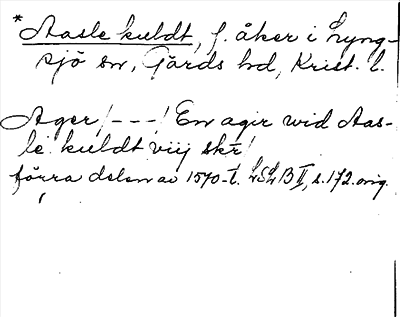 *Aasle kuldt, f. åker i Lyng-
sjö sn, Gärds hd, Krist. l.
Ager/---/ En agir wid Aas-
le kuldt viij skr/
förra delen av 1570-t. LSLB II, s. 172. orig.